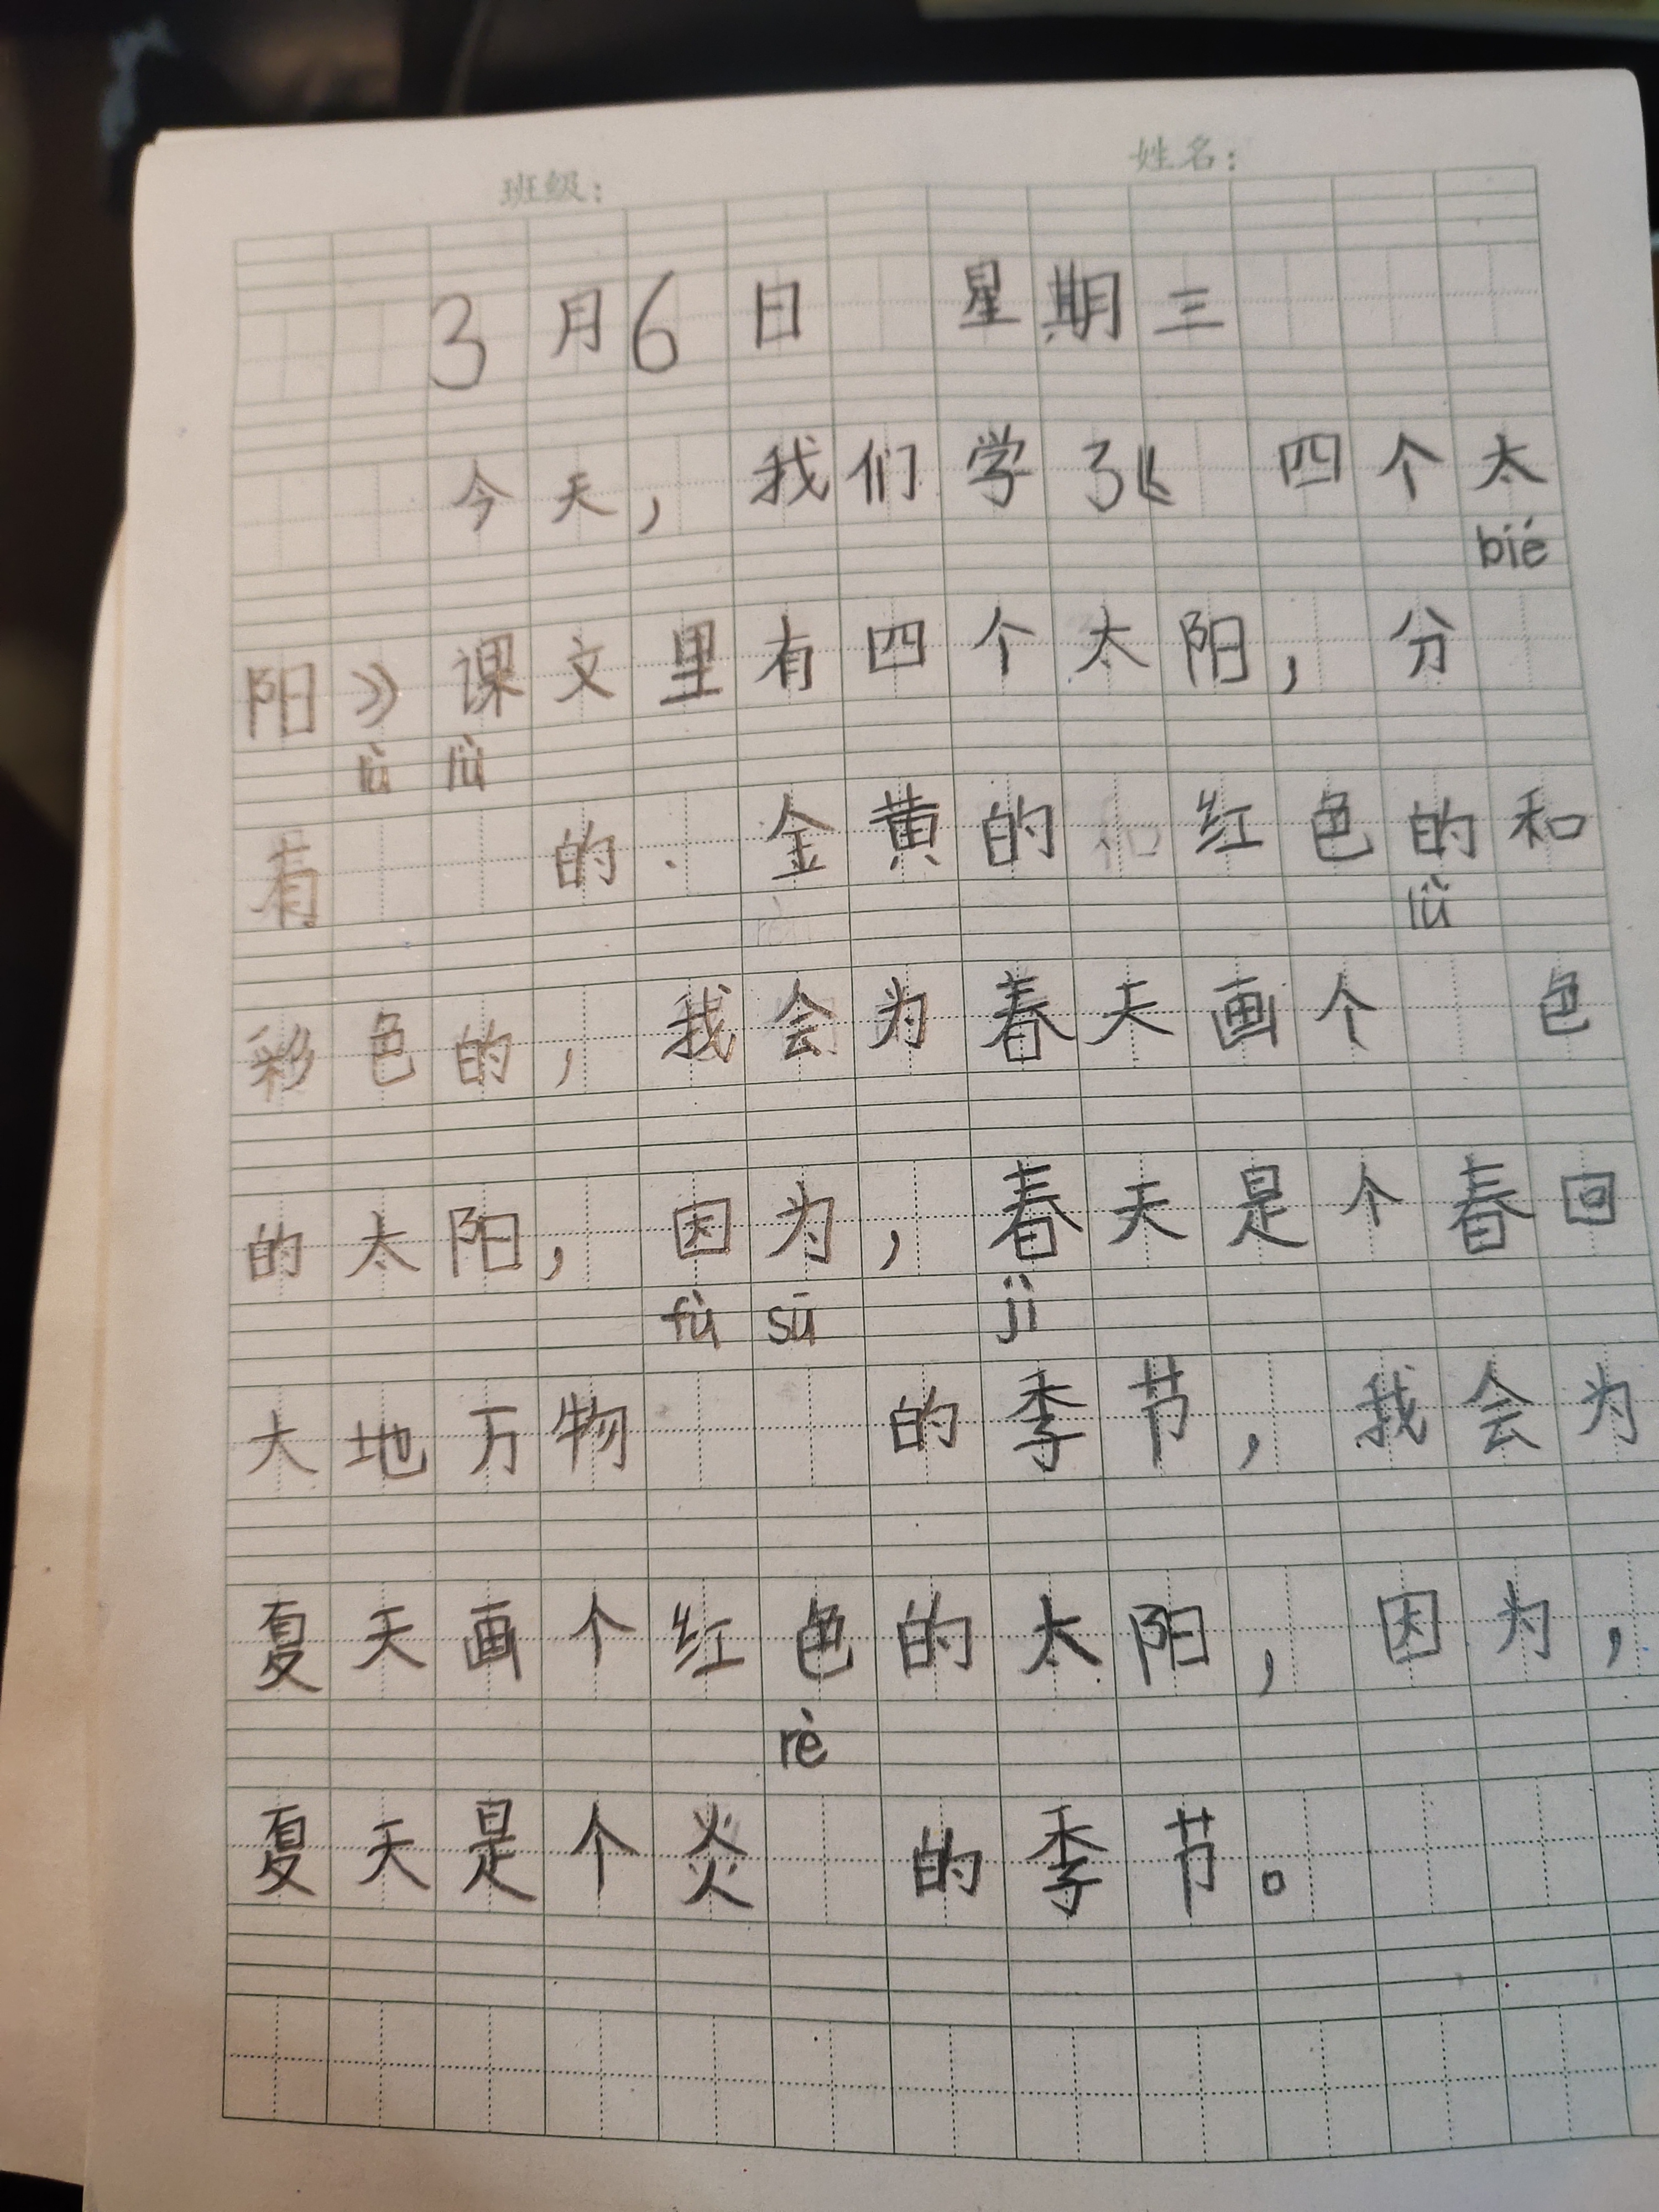 班级： 姓名：
3月6日 星期三
今天，我们学了《四个太
bié
阳》课文里有四个太阳，分
lǜ lǜ
有 的．金黄的 红色的和
lǜ
彩色的，我会为春天画个 色
的太阳，因为，春天是个春回
fù sū jì
大地万物 的季节，我会为
夏天画个红色的太阳，因为，
rè
夏天是个炎 的季节。